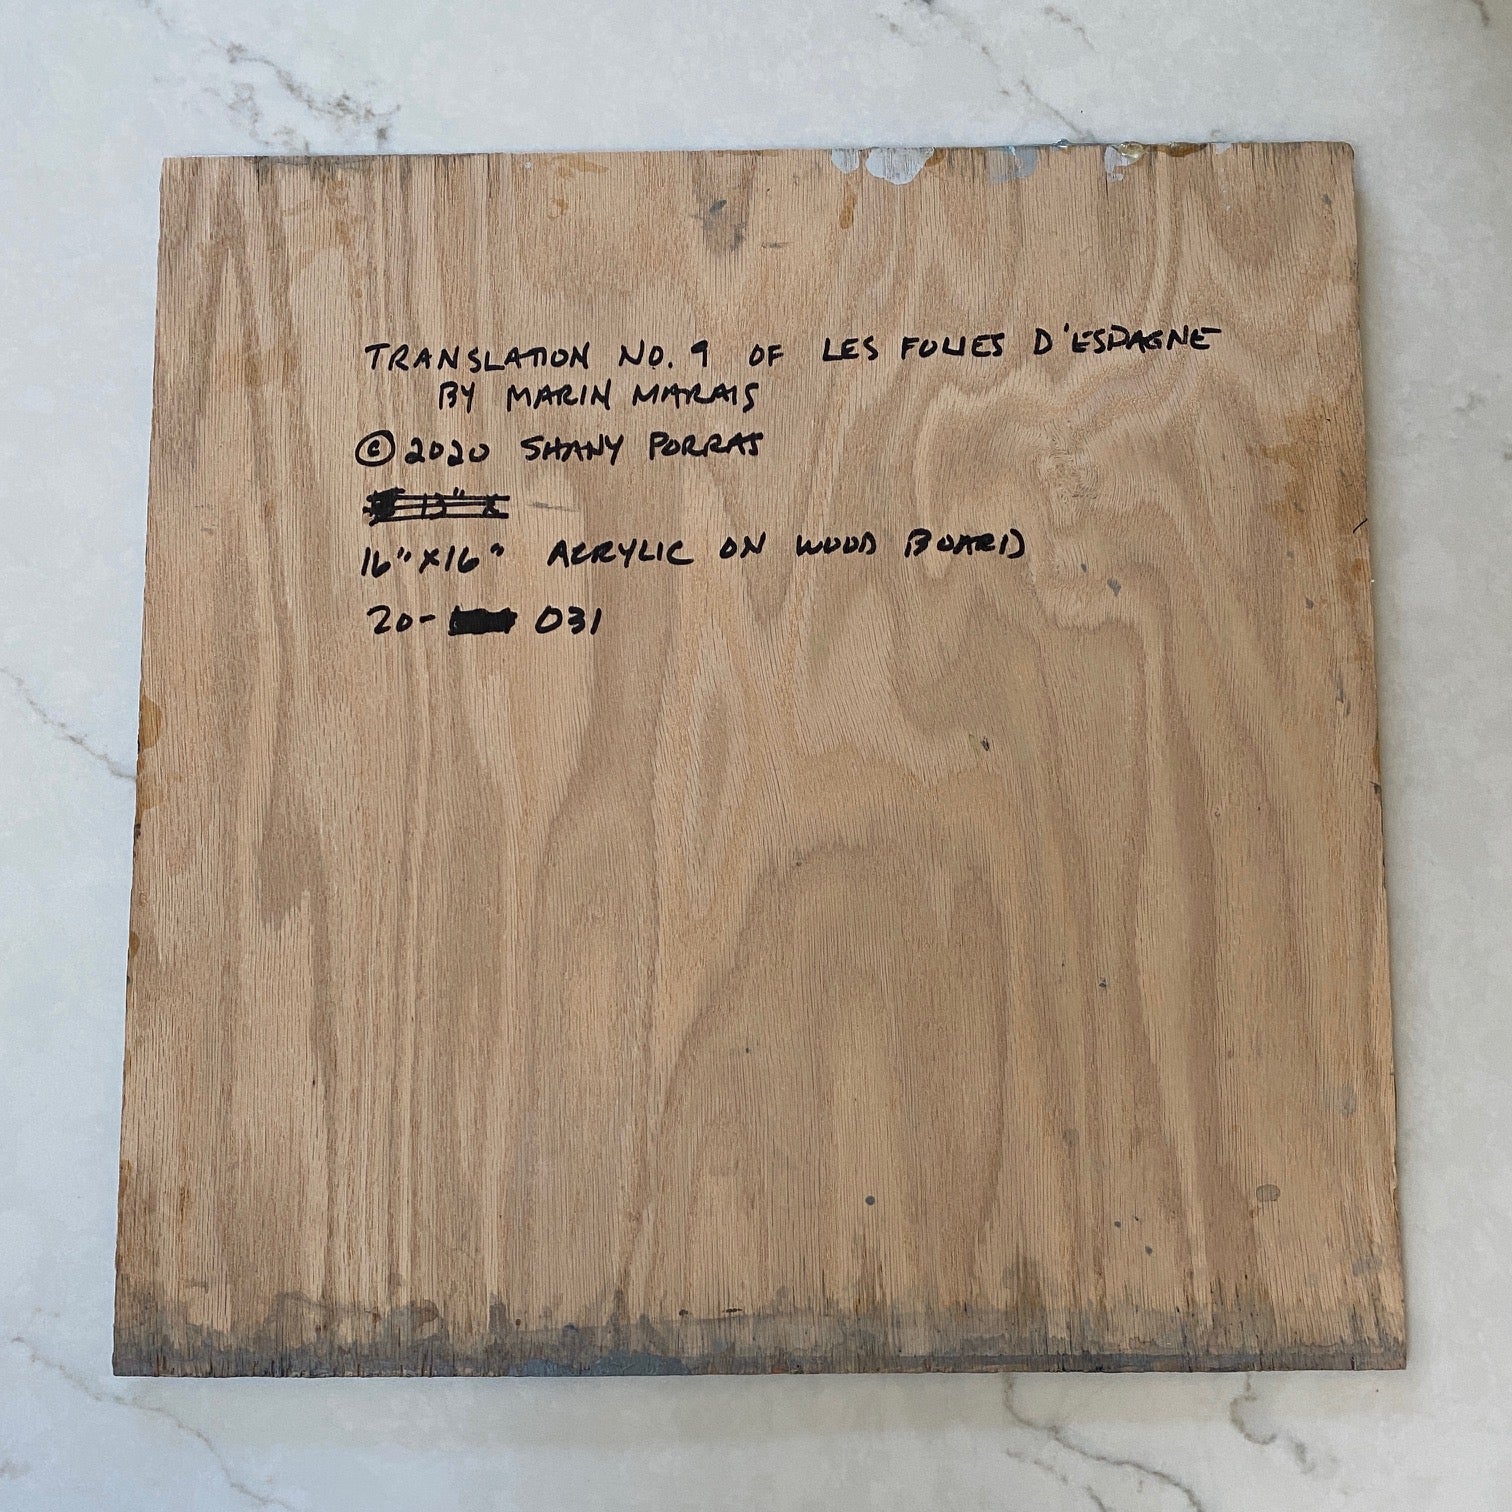 TRANSLATION NO. 9 OF LES FOLIES D'ESPAGNE
BY MARIN MARAIS
© 2020 SHANY PORRAS
16" X 16" ACRYLIC ON WOOD BOARD
20- 031